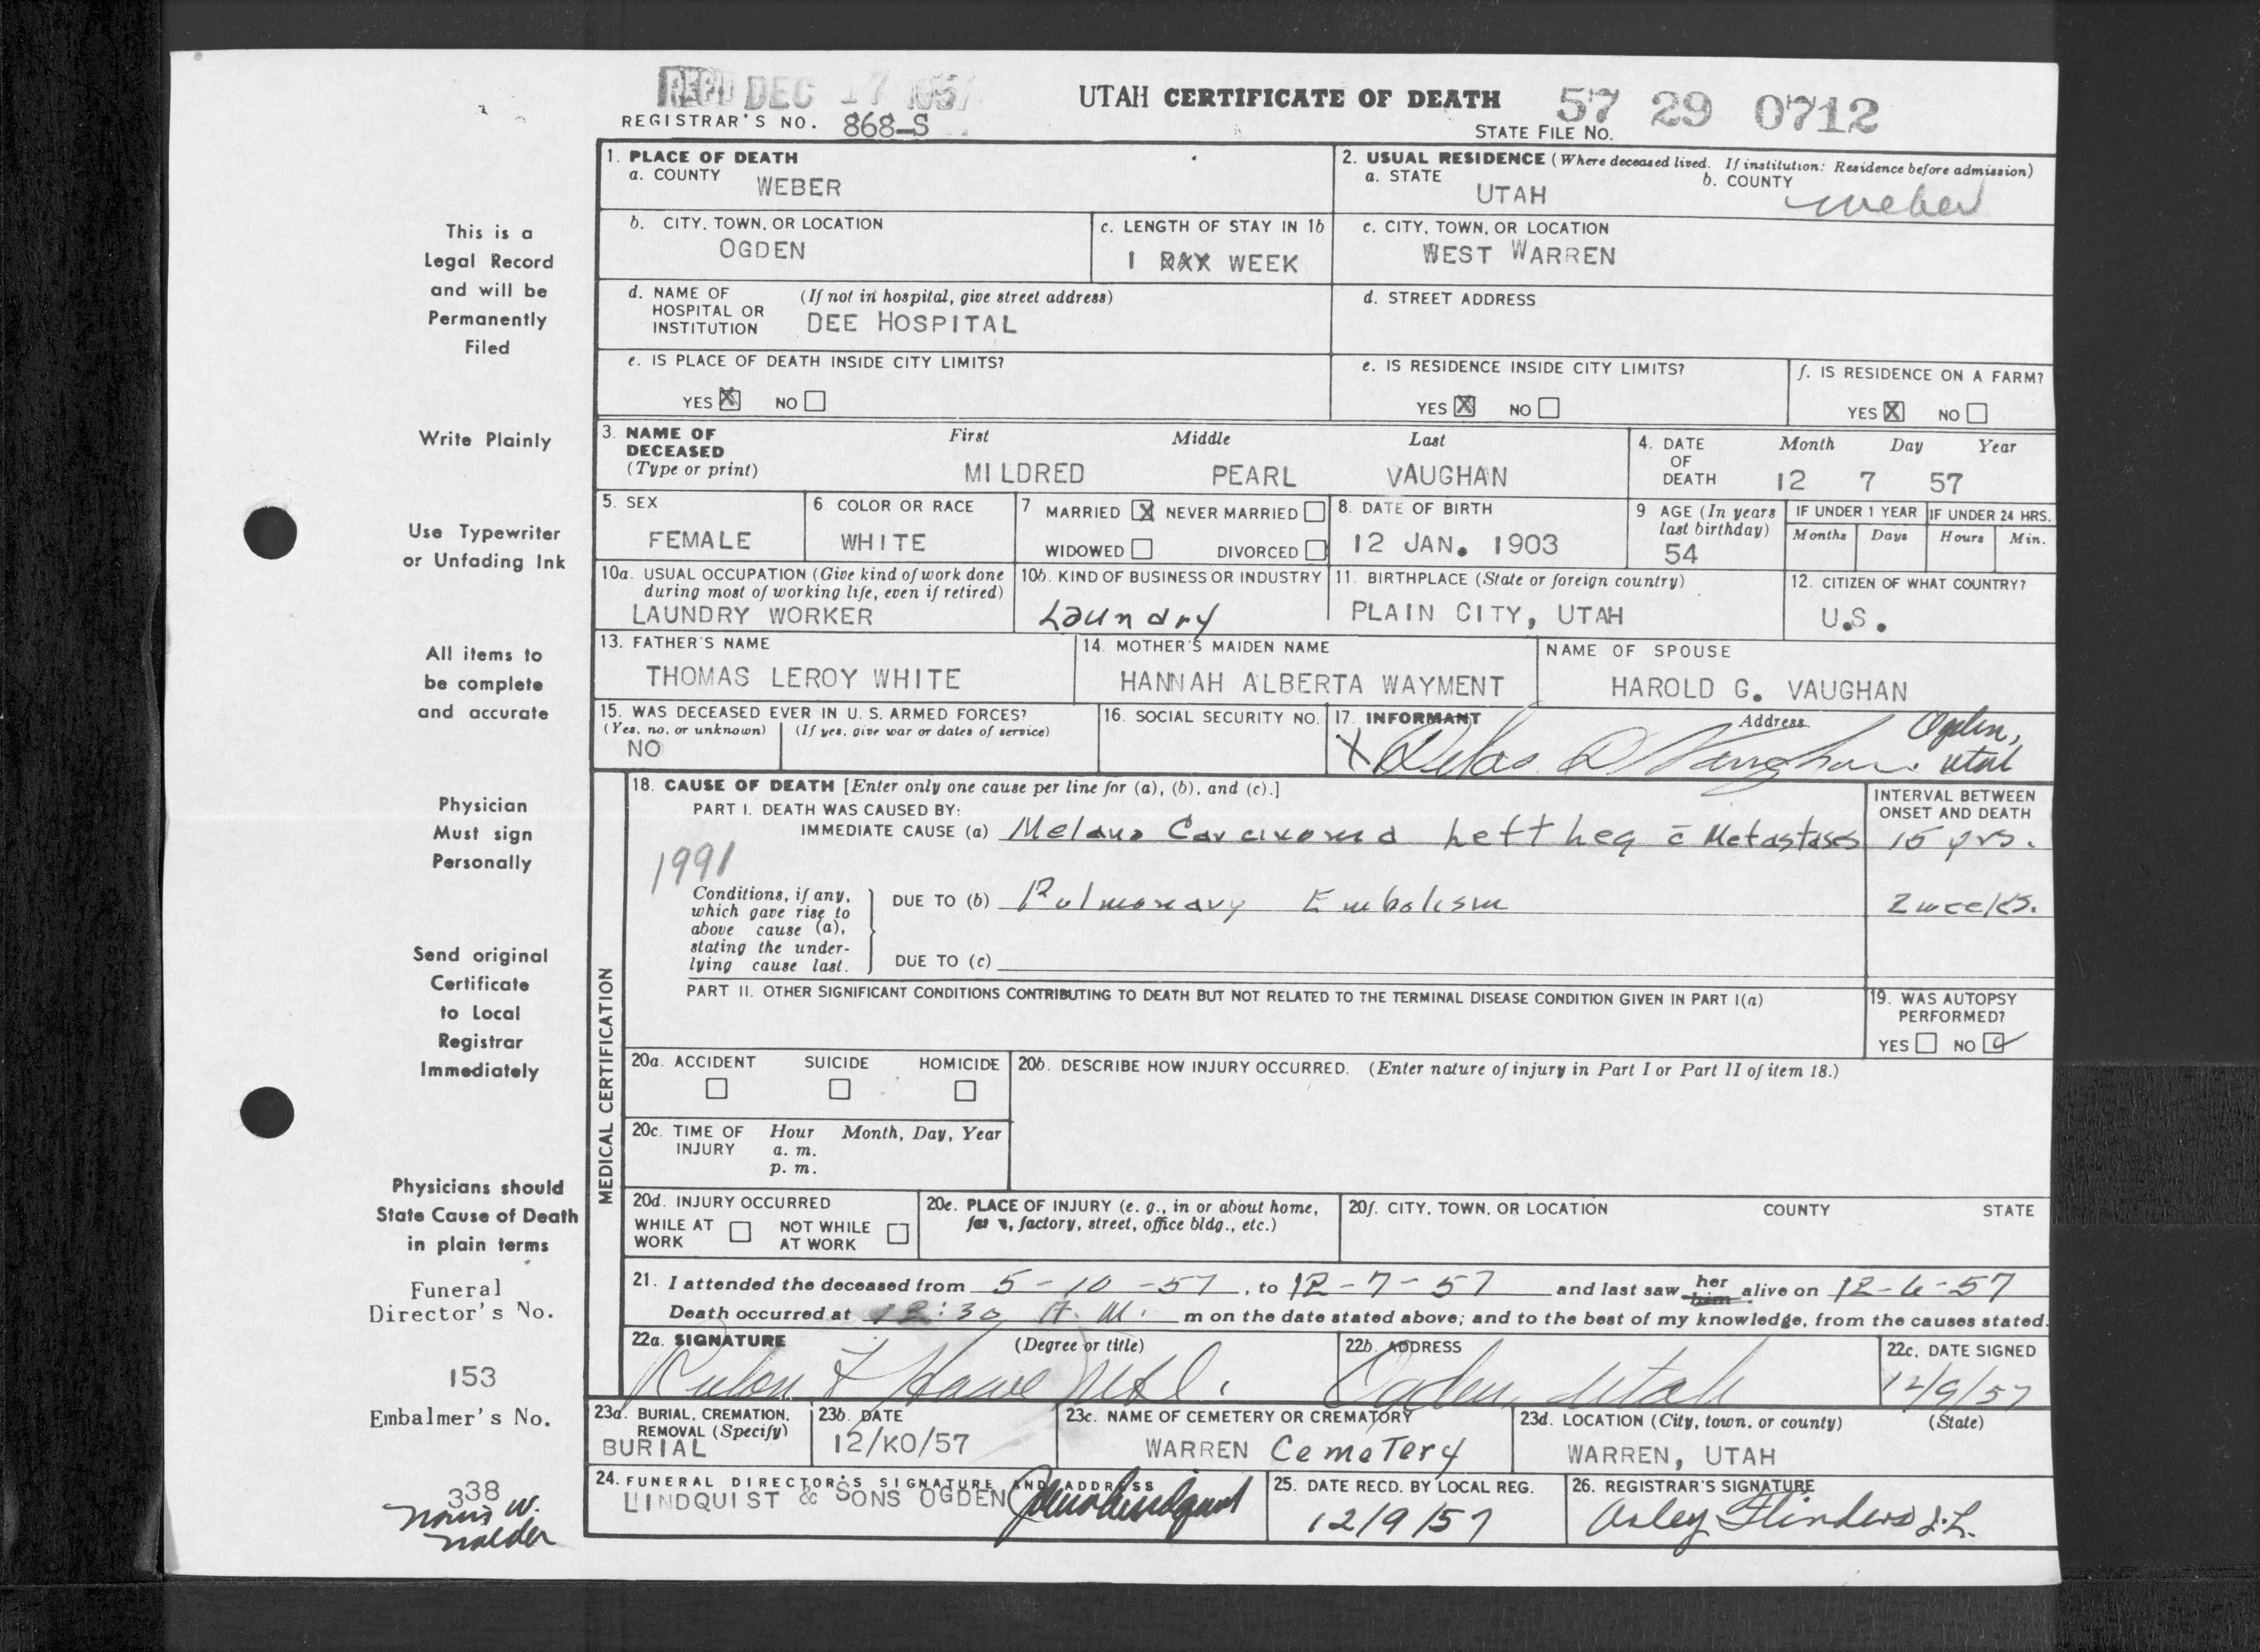 REC'D DEC 17 1957
UTAH CERTIFICATE OF DEATH 57 29 0712
REGISTRAR'S NO. 868-S
STATE FILE NO.
1. PLACE OF DEATH
a. COUNTY WEBER
2. USUAL RESIDENCE (Where deceased lived. If institution: Residence before admission)
a. STATE UTAH b. COUNTY Weber
b. CITY, TOWN, OR LOCATION OGDEN
c. LENGTH OF STAY IN 1b 1 DAY WEEK
c. CITY, TOWN, OR LOCATION WEST WARREN
d. NAME OF HOSPITAL OR INSTITUTION (If not in hospital, give street address) DEE HOSPITAL
d. STREET ADDRESS
e. IS PLACE OF DEATH INSIDE CITY LIMITS?
YES X NO
e. IS RESIDENCE INSIDE CITY LIMITS?
YES X NO
f. IS RESIDENCE ON A FARM?
YES X NO
3. NAME OF DECEASED (Type or print)
First Middle Last
MILDRED PEARL VAUGHAN
4. DATE OF DEATH Month Day Year
12 7 57
5. SEX FEMALE
6. COLOR OR RACE WHITE
7. MARRIED X NEVER MARRIED
WIDOWED DIVORCED
8. DATE OF BIRTH 12 JAN. 1903
9 AGE (In years last birthday) 54
IF UNDER 1 YEAR Months Days
IF UNDER 24 HRS. Hours Min.
10a. USUAL OCCUPATION (Give kind of work done during most of working life, even if retired)
LAUNDRY WORKER
10b. KIND OF BUSINESS OR INDUSTRY Laundry
11. BIRTHPLACE (State or foreign country) PLAIN CITY, UTAH
12. CITIZEN OF WHAT COUNTRY? U.S.
13. FATHER'S NAME THOMAS LEROY WHITE
14. MOTHER'S MAIDEN NAME HANNAH ALBERTA WAYMENT
NAME OF SPOUSE HAROLD G. VAUGHAN
15. WAS DECEASED EVER IN U. S. ARMED FORCES?
(Yes, no, or unknown) (If yes, give war or dates of service)
NO
16. SOCIAL SECURITY NO.
17. INFORMANT Address
X Delas D Vaughan. Ogden, Utah
MEDICAL CERTIFICATION
18. CAUSE OF DEATH [Enter only one cause per line for (a), (b), and (c).]
PART I. DEATH WAS CAUSED BY:
INTERVAL BETWEEN ONSET AND DEATH
IMMEDIATE CAUSE (a) Melano Carcinoma Left Leg c̄ Metastases 15 yrs.
1991
Conditions, if any, which gave rise to above cause (a), stating the underlying cause last.
DUE TO (b) Pulmonary Embolism 2 weeks.
DUE TO (c)
PART II. OTHER SIGNIFICANT CONDITIONS CONTRIBUTING TO DEATH BUT NOT RELATED TO THE TERMINAL DISEASE CONDITION GIVEN IN PART I(a)
19. WAS AUTOPSY PERFORMED?
YES NO
20a. ACCIDENT SUICIDE HOMICIDE
20b. DESCRIBE HOW INJURY OCCURRED. (Enter nature of injury in Part I or Part II of item 18.)
20c. TIME OF INJURY Hour Month, Day, Year
a. m.
p. m.
20d. INJURY OCCURRED
WHILE AT WORK NOT WHILE AT WORK
20e. PLACE OF INJURY (e. g., in or about home, farm, factory, street, office bldg., etc.)
20f. CITY, TOWN, OR LOCATION COUNTY STATE
21. I attended the deceased from 5-10-57, to 12-7-57 and last saw her him alive on 12-6-57
Death occurred at 12:30 A.M. m on the date stated above; and to the best of my knowledge, from the causes stated.
22a. SIGNATURE (Degree or title)
Rulon F Howe M.D.
22b. ADDRESS Ogden, Utah
22c. DATE SIGNED 12/9/57
23a. BURIAL, CREMATION, REMOVAL (Specify) BURIAL
23b. DATE 12/KO/57
23c. NAME OF CEMETERY OR CREMATORY WARREN Cemetery
23d. LOCATION (City, town, or county) (State)
WARREN, UTAH
24. FUNERAL DIRECTOR'S SIGNATURE AND ADDRESS
LINDQUIST & SONS OGDEN
25. DATE RECD. BY LOCAL REG. 12/9/57
26. REGISTRAR'S SIGNATURE
Osley Flinders J.L.
This is a
Legal Record
and will be
Permanently
Filed
Write Plainly
Use Typewriter
or Unfading Ink
All items to
be complete
and accurate
Physician
Must sign
Personally
Send original
Certificate
to Local
Registrar
Immediately
Physicians should
State Cause of Death
in plain terms
Funeral
Director's No.
153
Embalmer's No.
338
Norris W.
Nalder